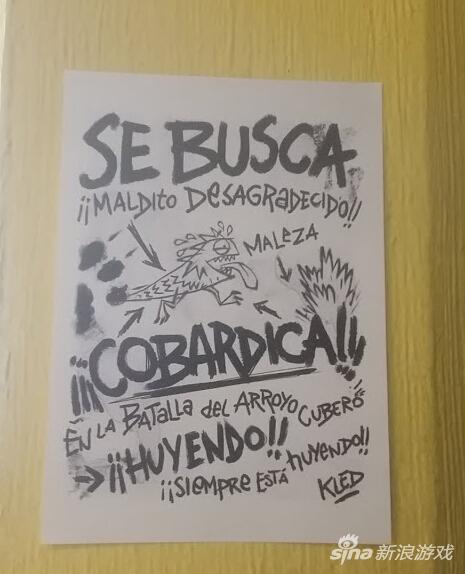 SE BUSCA
¡¡MALDITO DESAGRADECIDO!!
MALEZA
¡¡¡COBARDICA!!!
EN LA BATALLA del ARROYO CUBERO
¡¡HUYENDO!!
¡¡SIEMPRE ESTÁ huYENDO!!
KLED
sina 新浪游戏